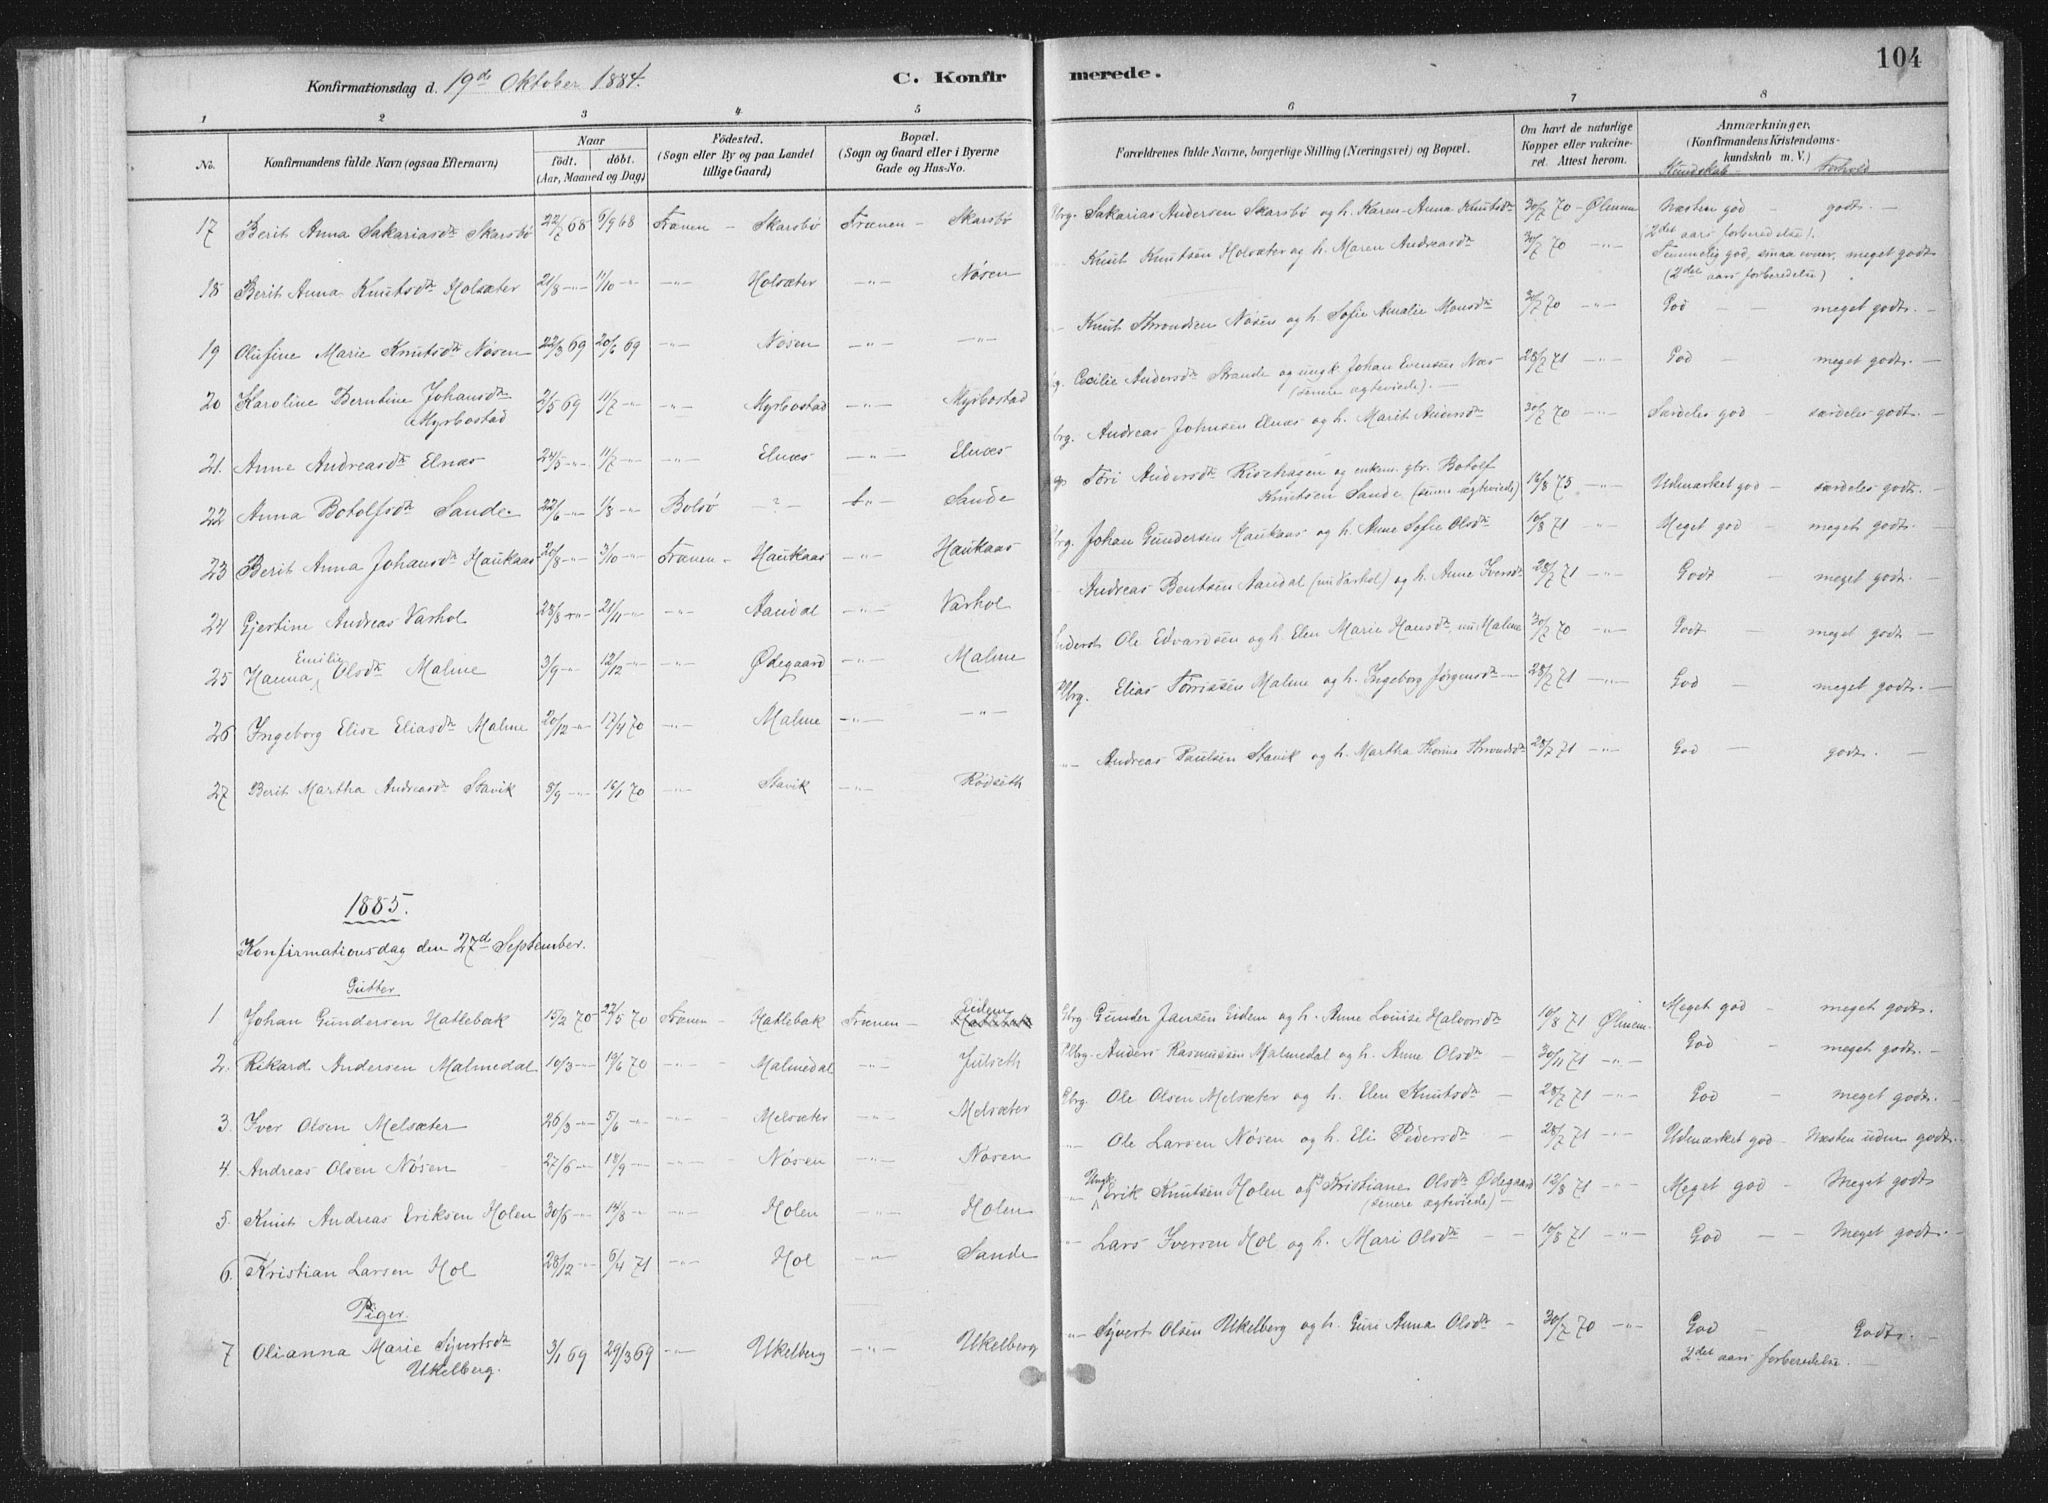 104
Konfirmationsdag d. 19de Oktober 1884. C. Konfirmerede.
1 2 3 4 5 6 7 8
No. Konfirmandens fulde Navn (ogsaa Efternavn) Naar födt. döbt. (Aar, Maaned og Dag) Födested. (Sogn eller By og paa Landet tillige Gaard) Bopæl. (Sogn og Gaard eller i Byerne Gade og Hus-No. Forældrenes fulde Navne, borgerlige Stilling (Næringsvei) og Bopæl. Om havt de naturlige Kopper eller vakcineret. Attest herom. Anmærkninger. (Konfirmandens Kristendomskundskab m. V.) Kundskab - Forhold
17 Berit Anna Sakariasdtr Skarsbø 22/7 68 6/9 68 Frænen - Skarsbø Frænen - Skarsbø Gbrg. Sakarias Andersen Skarsbø og h. Karen Anna Knutsdtr 30/7 70 - Ølmem Næsten god - godt. -
2det aars forberedelse).
18 Berit Anna Knutsdtr Holsæter 21/8 -"- 11/10 -"- -"- Holsæter -"- Nøsen Knut Knutsen Holsæter og h. Maren Andreasdtr 30/7 70 -"- Temmelig god, smaa evner, meget godt
(2det aars forberedelse)
19 Olufine Marie Knutsdtr Nøsen 22/3 69 20/6 69 -"- Nøsen -"- -"- Knut Throndsen Nøsen og h. Sofie Amalie Monsdtr 30/7 70 -"- God - - meget godt. -
20 Karoline Berntine Johansdtr Myrbostad 2/5 69 11/7 -"- -"- Myrbostad -"- Myrbostad Cecilie Andersdtr Strande og ungk. Johan Evensen Næs (senere ægteviede). - 28/7 71 -"- God - meget godt. -
21. Anne Andreasdtr Elnæs 24/5 -"- 11/7 -"- -"- Elnæs -"- Elnæs Gbrg. Andreas Johnsen Elnæs og h. Marit Andersdtr 30/7 70 -"- Særdeles god - særdeles godt. -
22 Anna Botolfsdtr Sande. 22/6 -"- 1/8 -"- Bolsø - ? - -"- Sande Tøri Andersdtr Risehagen og enkem. gbr. Botolf Knutsen Sande (senere ægteviede) 16/8 73 -"- Udmærket god - særdeles godt. -
23 Berit Anna Johansdtr Haukaas 20/8 -"- 3/10 -"- Frænen - Haukaas -"- Haukaas Gbrg. Johan Gundersen Haukaas og h. Anne Sofie Olsdtr 10/8 71 -"- Meget god - meget godt. -
24 Gjertine Andreas Varhol 28/8 -"- 21/11 -"- -"- Aandal -"- Varhol Andreas Bentsen Aandal (nu Varhol) og h. Anne Iversdtr 28/7 71 -"- Godt - meget godt. -
25 Hanna Emilie Olsdtr Malme 3/9 -"- 12/12 -"- -"- Ødegaard -"- Malme Inderst Ole Edvardsen og h. Elen Marie Hansdtr, nu Malme 30/7 70 -"- Godt - meget godt -
26 Ingeborg Elise Eliasdtr Malme 20/12 -"- 17/4 70 -"- Malme -"- -"- Gbrg. Elias Tørrissen Malme og h. Ingeborg Jørgensdtr - 28/7 71 -"- God - meget godt. -
27 Berit Martha Andreasdtr Stavik 8/9 -"- 16/1 70 -"- Stavik -"- Rødseth -"- Andreas Paulsen Stavik og h. Martha Thorine Throndsdtr 28/7 71 -"- God - godt. -
1885.
Konfirmationsdag den 27de September.
Gutter
1. Johan Gundersen Hatlebak 15/2 70 22/5 70 Frænen - Hatlebak Frænen - Eidem Gbrg. Gunder Jansen Eidem og h. Anne Louise Halvorsdtr 10/8 71 Ølmem - Meget god - meget godt.
2. Rikard Andersen Malmedal 10/3 -"- 19/6 70 -"- Malmedal -"- Julseth Gbrg. Anders Rasmussen Malmedal og h. Anne Olsdtr - 30/11 71 -"- God - meget godt. -
3. Iver Olsen Melsæter 26/3 -"- 5/6 -"- -"- Melsæter -"- Melsæter Gbrg. Ole Olsen Melsæter og h. Elen Knutsdtr - 28/7 71 -"- God - meget godt. -
4. Andreas Olsen Nøsen 27/6 -"- 18/9 -"- -"- Nøsen -"- Nøsen -"- Ole Larsen Nøsen og h. Eli Pedersdtr - 28/7 71 -"- Udmærket god - Næsten uden godt.
5. Knut Andreas Eriksen Holen 30/6 -"- 14/8 -"- -"- Holen -"- Holen -"- Ungk. Erik Knutsen Holen og Kristiane Olsdtr Ødegaard (senere ægteviede) - 12/8 71 -"- Meget god - Meget godt
6. Kristian Larsen Hol 28/12 -"- 6/4 71 -"- Hol -"- Sande -"- Lars Iversen Hol og h. Mari Olsdtr - - 10/8 71 -"- God - - Meget godt. -
Piger.
7 Olianna Marie Syvertsdtr Ukelberg. 3/1 69 29/3 69 -"- Ukelberg -"- Ukelberg -"- Syvert Olsen Ukelberg og h. Guri Anna Olsdtr - 30/7 70 -"- God - Godt. -
2det aars forberedelse. -